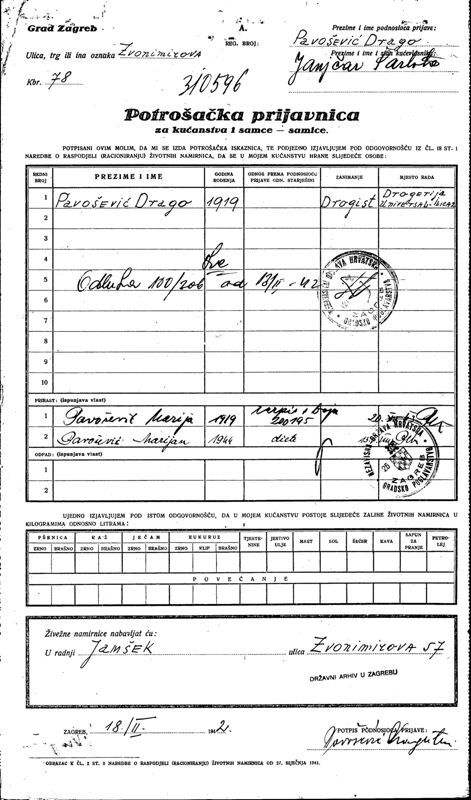 Grad Zagreb
A.
REG. BROJ:
310596
Prezime i ime podnosioca prijave:
Pavošević Drago
Ulica, trg ili ina oznaka Zvonimirova
Prezime i ime stan. kućevlasnika:
Janjčar Šarlota
Kbr. 78
Potrošačka prijavnica
za kućanstva i samce — samice.
POTPISANI OVIM MOLIM, DA MI SE IZDA POTROŠAČKA ISKAZNICA, TE PODJEDNO IZJAVLJUJEM POD ODGOVORNOŠĆU IZ ČL. 18 ST. 1
NAREDBE O RASPODJELI (RACIONIRANJU) ŽIVOTNIH NAMIRNICA, DA SE U MOJEM KUĆANSTVU HRANE SLIJEDEĆE OSOBE:
REDNI BROJ PREZIME I IME GODINA ROĐENJA ODNOS PREMA PODNOSIOCU PRIJAVE ODN. STARJEŠINI ZANIMANJE MJESTO RADA
1 Pavošević Drago 1919 Drogist Drogerija
2
3
4
5 Odluka 100/206 od 18/II-42
6
7
8
9
10
NEZAVISNA DRŽAVA HRVATSKA
GRADSKO POGLAVARSTVO
ZAGREB
PRIRAST: (ispunjava vlast)
1 Pavošević Marija 1919
200195
2 Pavošević Marijan 1944 dijete
ODPAD: (ispunjava vlast)
1
2
NEZAVISNA DRŽAVA HRVATSKA
GRADSKO POGLAVARSTVO
ZAGREB
UJEDNO IZJAVLJUJEM POD ISTOM ODGOVORNOŠĆU, DA U MOJEM KUĆANSTVU POSTOJE SLIJEDEĆE ZALIHE ŽIVOTNIH NAMIRNICA U
KILOGRAMIMA ODNOSNO LITRAMA:
PŠENICA RAŽ JEČAM KUKURUZ TJESTENINE JESTIVO ULJE MAST SOL ŠEĆER KAVA SAPUN ZA PRANJE PETROLEJ
ZRNO BRAŠNO ZRNO BRAŠNO ZRNO BRAŠNO ZRNO KLIP BRAŠNO
POVEĆANJE
Živežne namirnice nabavljat ću:
U radnji Jamšek ulica Zvonimirova 57
DRŽAVNI ARHIV U ZAGREBU
ZAGREB, 18/II. 1942.
POTPIS PODNOSIOCA PRIJAVE:
OBRAZAC K ČL. 2 ST. 2 NAREDBE O RASPODJELI (RACIONIRANJU) ŽIVOTNIH NAMIRNICA OD 27. SIJEČNJA 1941.